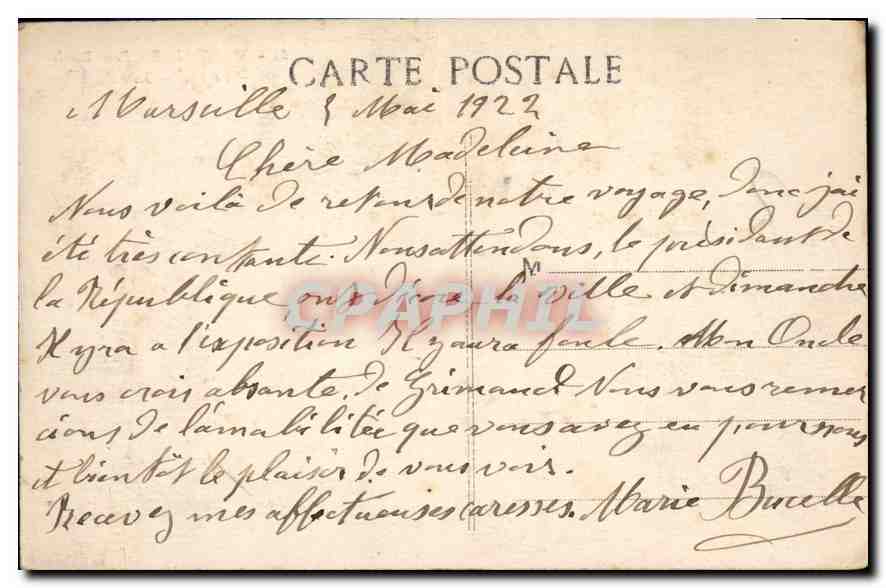 CARTE POSTALE
Marseille 5 Mai 1922
Chère Madeleine
Nous voilà de retour de notre voyage, donc j'ai
été très contante. Nous attendons, le présidant de
la République on décore la ville et dimanche
Il yra a l'exposition Il y aura foule. Mon Oncle
vous crois absante, de Grimaud Nous vous remer
cions de l'amabilitée que vous avez eu pour nous
et bientôt le plaisir de vous voir.
Recevez mes affectueuses caresses. Marie Bucelle
CPAPHIL